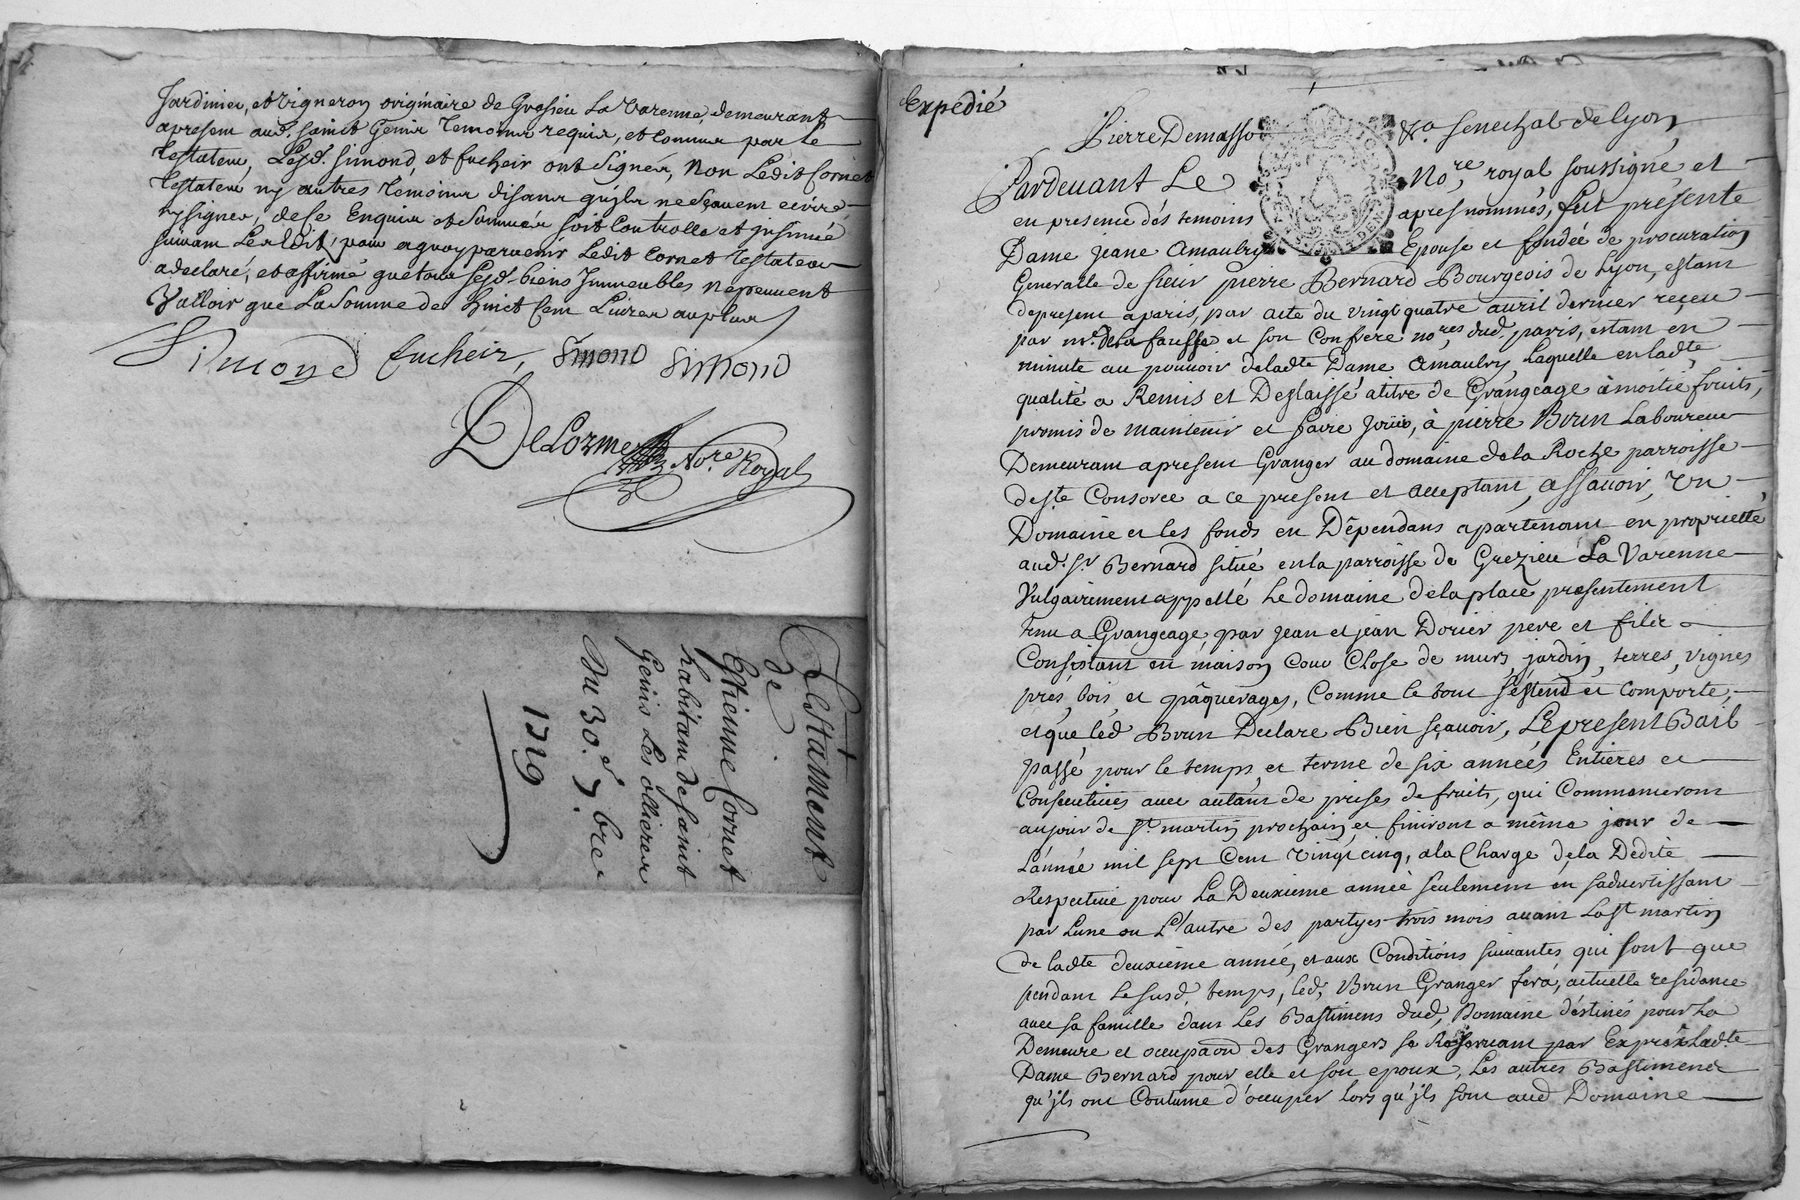 Jardinier, et Vigneron originaire de Grosieu La Varenne, demeurant
apresent aud. sainct Genis Temoins requis, et connus par le
testateur, Lesd. Simond, et fucheir ont signés, Non Ledit Cornet
testateur ny autres temoins disans qu'jls ne sçavent ecrire
ny signer, de ce Enquis et Sommés soit Controllé et jnsinué
suivant Lesdit, pour aquoy parvenir Ledit Cornet testateur
adeclaré, et affirmé que tous sesd. biens Jmmeubles Nepeuvent
Valloir que La somme de huict Cent Livres au plus
Simond fucheir, Simond Simond
DeLorme No.re Royal
Testament
de
Estienne Cornet
habitant de saint
Genis Les ollieres
Du 30.e 7.bre
1719
Expedié
Pierre Demasso &a senechal de lyon
Pardevant Le No.re royal soussigné, et
en presence dés temoins apres nommés, fut présente
Dame Jeane Amaulry Epouse et fondée de procuration
Generalle de sieur pierre Bernard Bourgeois de Lyon, estant
depresent a paris, par acte du vingt quatre avril dernier reçeu
par me. fausse et son Confrere no.res dud. paris, estant en
minute au pouvoir deladte Dame Amaulry, Laquelle en ladte
qualité a Remis et Deslaissé atitre de Grangeage à moitié fruits,
promis de maintenir et faire Joüir, à pierre Brun Laboureur
Demeurant apresent Granger au domaine de la Roche parroisse
de ste Consorce a ce present et acceptant, assavoir, Un
Domaine et les fonds en Dépendans apartenant en proprietté
aud. sr Bernard situé en la parroisse de Grezieu La Varenne
Vulgairement appellé Le domaine delaplace presentement
tenu a Grangeage par Jean et jean Dorier pere et fils
Consistant en maison Cour Close de murs, jardin, terres, vignes
prés, bois, et pâquerages, Comme le tout s'éstend et comporte,
et que led Brun Declare Bien sçavoir, Le present Bail
passé pour le temps et terme de six années Entieres et
Consecutives avec autant de prises de fruits, qui Commenceront
au jour de st martin prochain et finiront a même jour de
L'année mil sept Cent vingt cinq, a la Charge de la Dédite
Respective pour La Deuxieme année seulement en s'advertissant
par L'une ou L'autre des partyes trois mois avant La st martin
de ladte deuxieme année, et aux Conditions suivantes qui sont que
pendant Le susd. temps, led. Brun Granger fera, actuelle residance
avec sa famille dans Les Bastimens dud, Domaine déstinés pour La
Demeure et occupaon des Grangers se Réservant par Exprés Ladte
Dame Bernard pour elle et son epoux, Les autres Bastimens
qu'jls ont Coutume d'occuper lors qu'jls sont aud Domaine